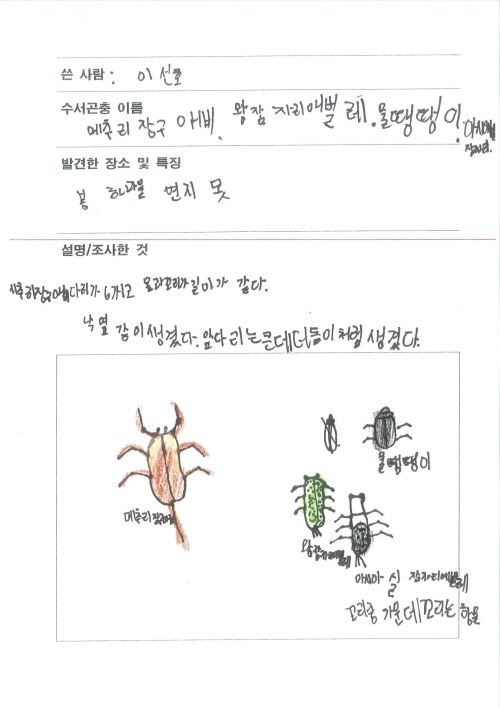 쓴 사람 : 이 선호
수서곤충 이름
메추리 장구 애비, 왕잠 자리애벌 레. 물땡땡이.
아시아실
잠자리.
발견한 장소 및 특징
봉 하마을 연지 못
설명/조사한 것
메추리장구애비다리가 6개고 몸과꼬리가길이가 같다.
낙엽 같이생겼다. 앞다리는큰데더듬이처럼 생겼다.
물땡땡이
메추리장구애비
왕잠자리애벌레
아시아 실 잠자리애벌레
꼬리중 가운데꼬리는